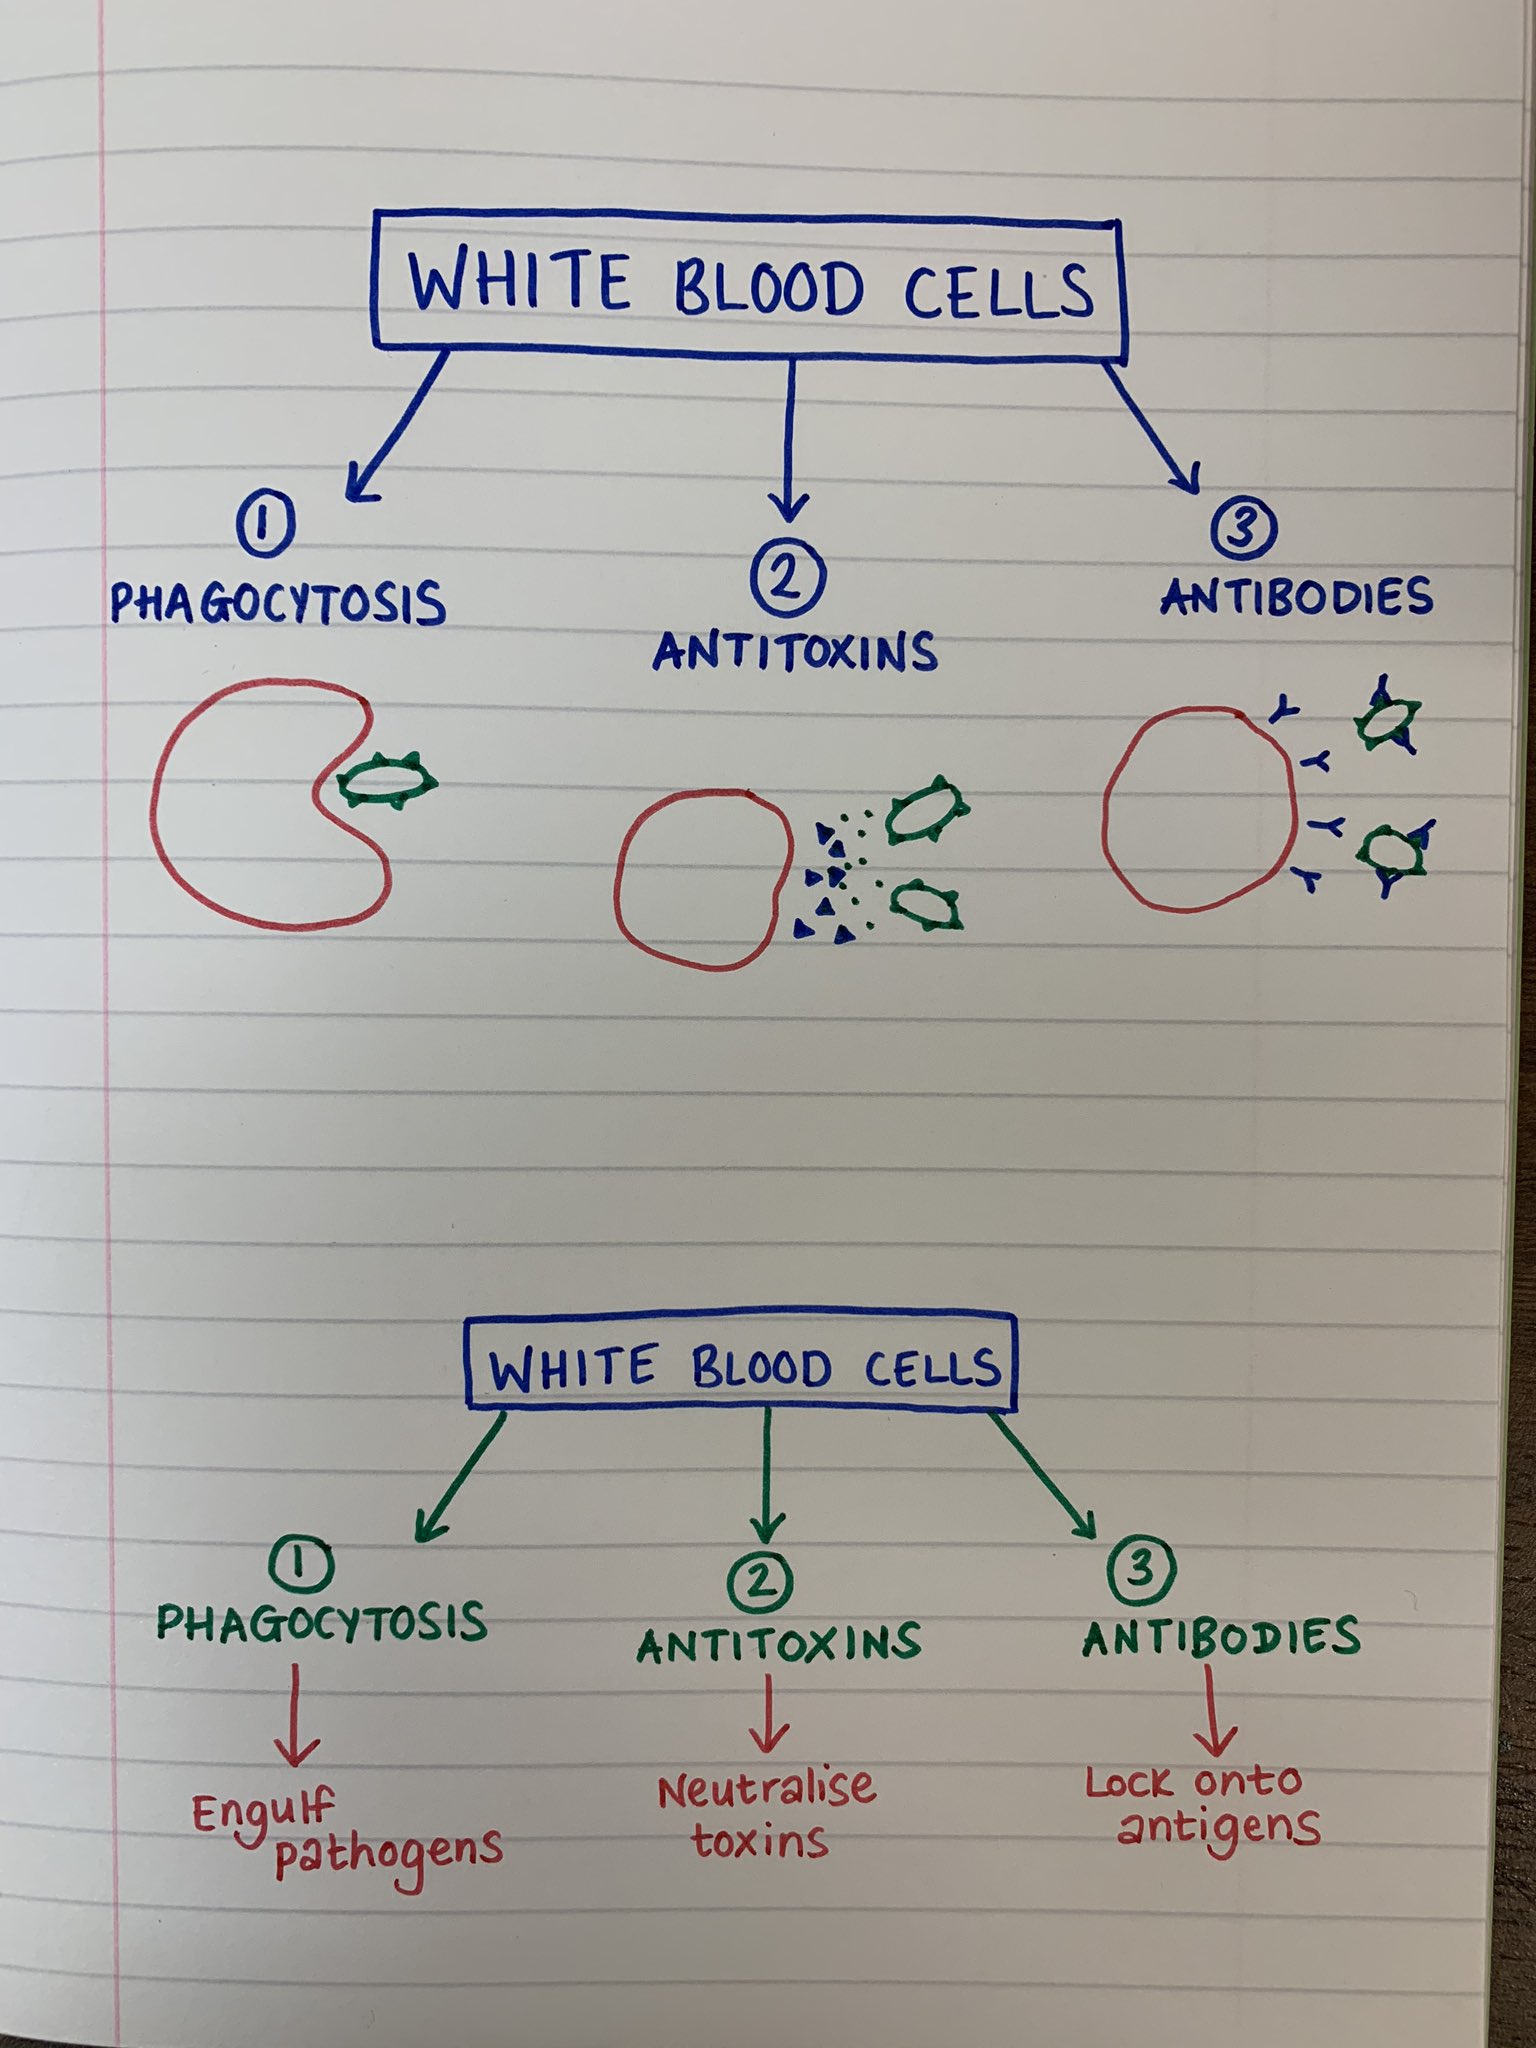 WHITE BLOOD CELLS
1
PHAGOCYTOSIS
2
ANTITOXINS
3
ANTIBODIES
WHITE BLOOD CELLS
1
PHAGOCYTOSIS
Engulf
pathogens
2
ANTITOXINS
Neutralise
toxins
3
ANTIBODIES
Lock onto
antigens